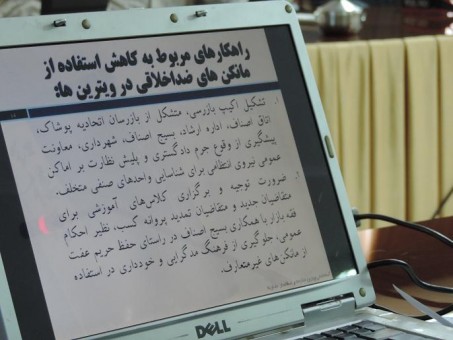 راهکارهای مربوط به کاهش استفاده از
مانکن های ضداخلاقی در ویترین ها:
۱. تشکیل اکیپ بازرسی، متشکل از بازرسان اتحادیه پوشاک،
اتاق اصناف، اداره ارشاد، بسیج اصناف، شهرداری، معاونت
پیشگیری از وقوع جرم دادگستری و پلیش نظارت بر اماکن
عمومی نیروی انتظامی برای شناسایی واحدهای صنفی متخلف.
۲. ضرورت توجیه و برگزاری کلاس‌های آموزشی برای
متقاضیان جدید و متقاضیان تمدید پروانه کسب، نظیر احکام
فقه بازار با همکاری بسیج اصناف در راستای حفظ حریم عفت
عمومی، جلوگیری از فرهنگ مدگرایی و خودداری در استفاده
از مانکن های غیرمتعارف.
DELL